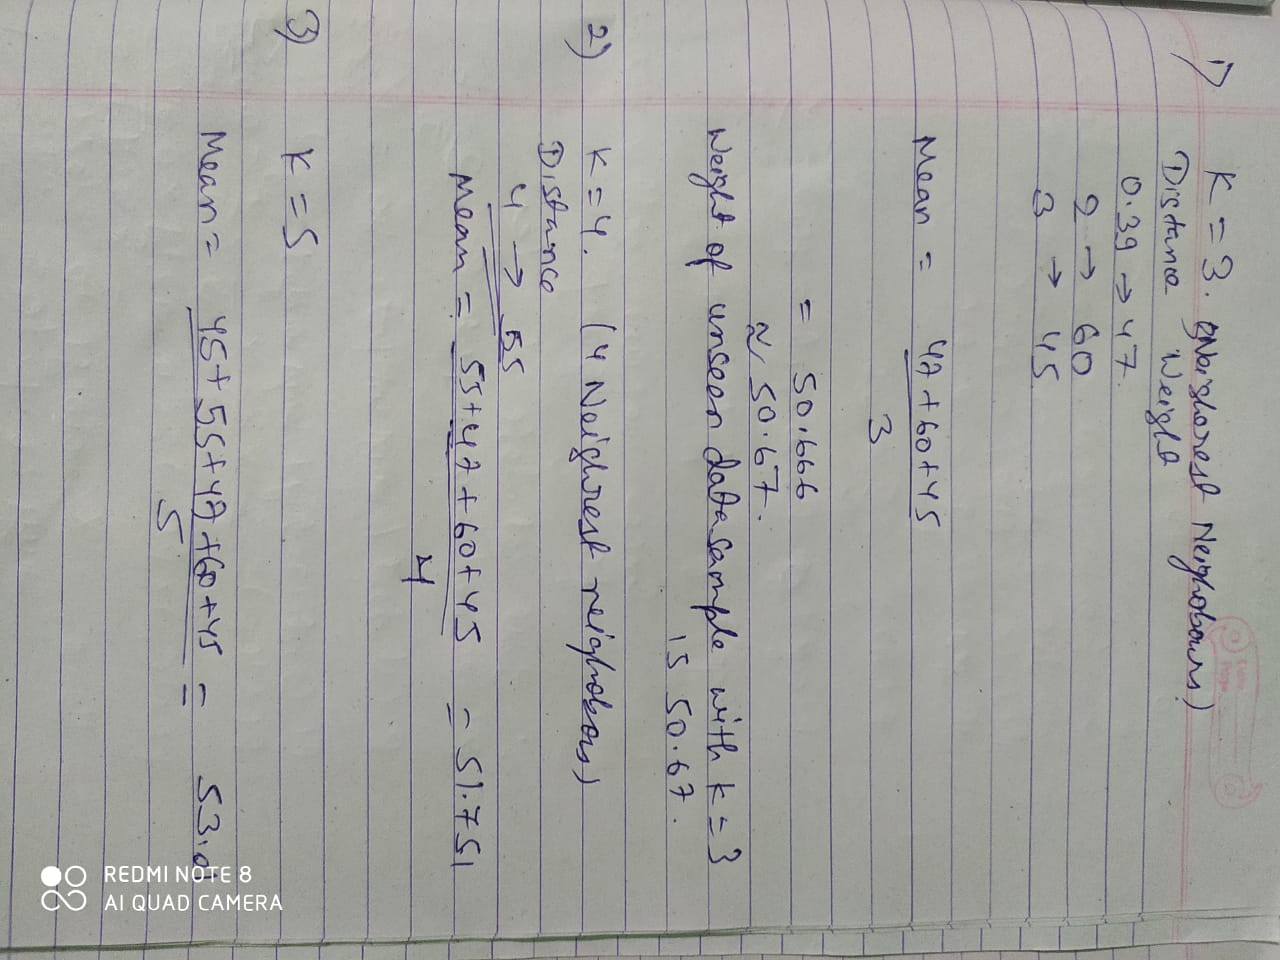 Date
Page
1) K = 3. (3 Neighorest Neighobours)
Distance Weight
0.39 → 47.
2 → 60
3 → 45
Mean = 47 + 60 + 45
3
= 50.666
≈ 50.67.
Weight of unseen data sample with k = 3
is 50.67.
2) K = 4. (4 Neighrest neighobors)
Distance
4 → 55
Mean = 55 + 47 + 60 + 45 = 51.751
4
3) K = 5
Mean = 45 + 55 + 47 + 60 + 45 = 53.0
5
REDMI NOTE 8
AI QUAD CAMERA